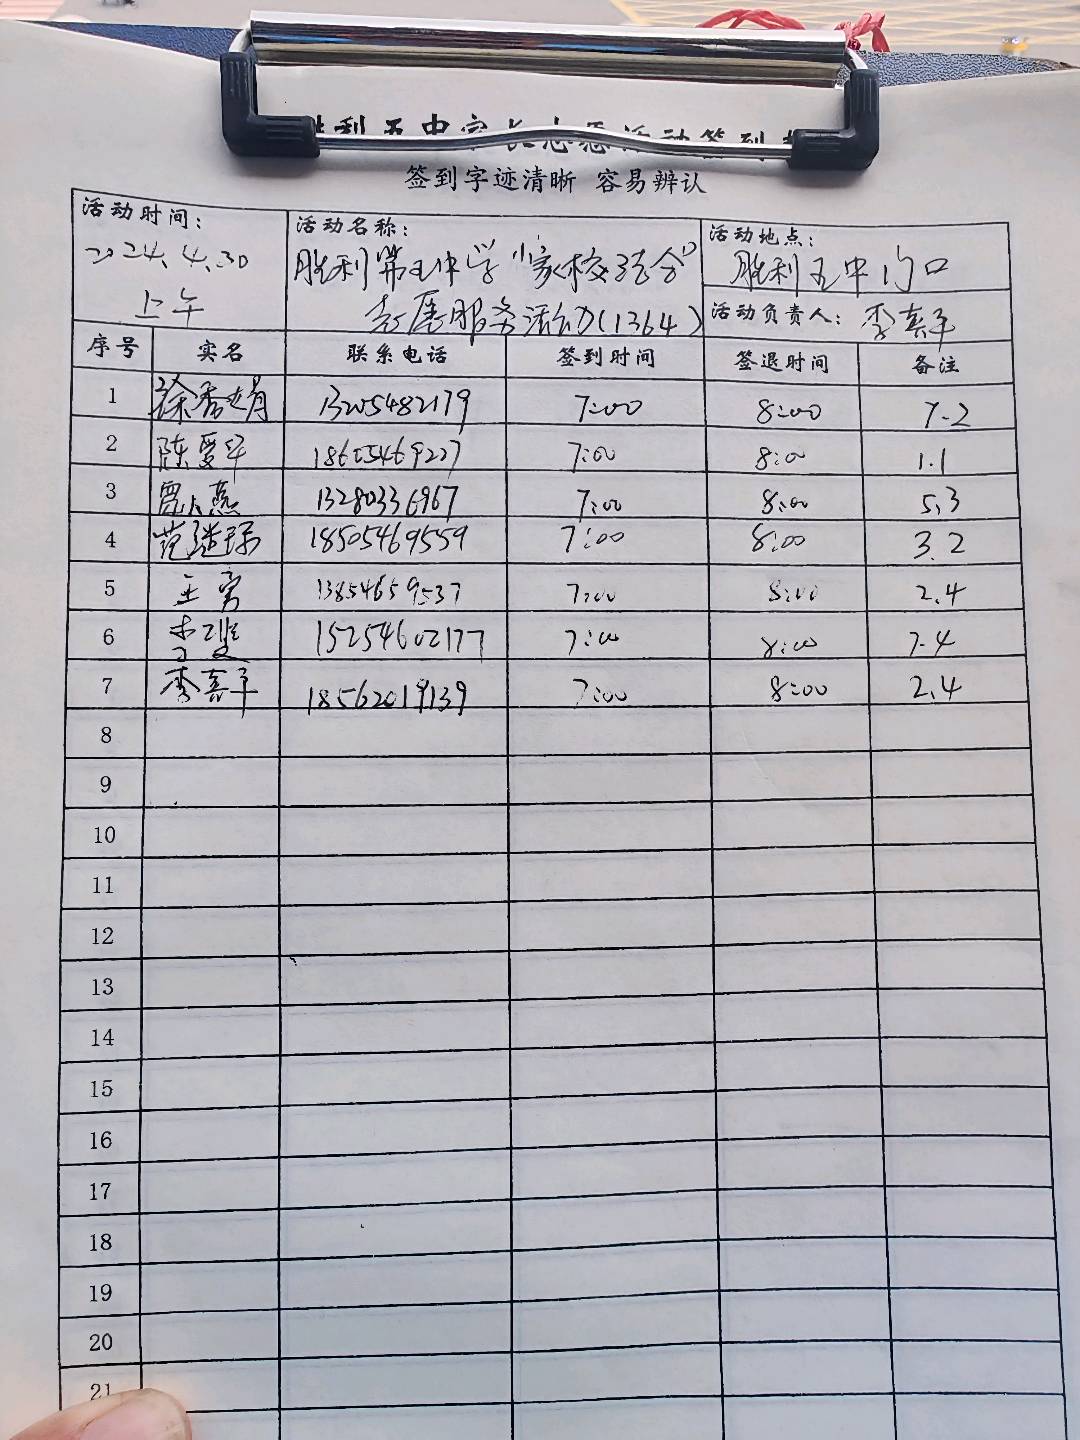 胜利五中家长志愿活动签到表
签到字迹清晰 容易辨认
活动时间：
2024.4.30
上午
活动名称：
胜利第五中学"家校结合"
志愿服务活动(1364)
活动地点：
胜利五中门口
活动负责人：李嘉平
序号 实名 联系电话 签到时间 签退时间 备注
1 徐秀娟 13205482179 7:00 8:00 7.2
2 陈爱华 18605469227 7:00 8:00 1.1
3 燕 13280336967 7:00 8:00 5.3
4 范继环 18505469559 7:00 8:00 3.2
5 王勇 13854659537 7:00 8:00 2.4
6 李 15254602177 7:00 8:00 7.4
7 李嘉平 18562019139 7:00 8:00 2.4
8
9
10
11
12
13
14
15
16
17
18
19
20
21